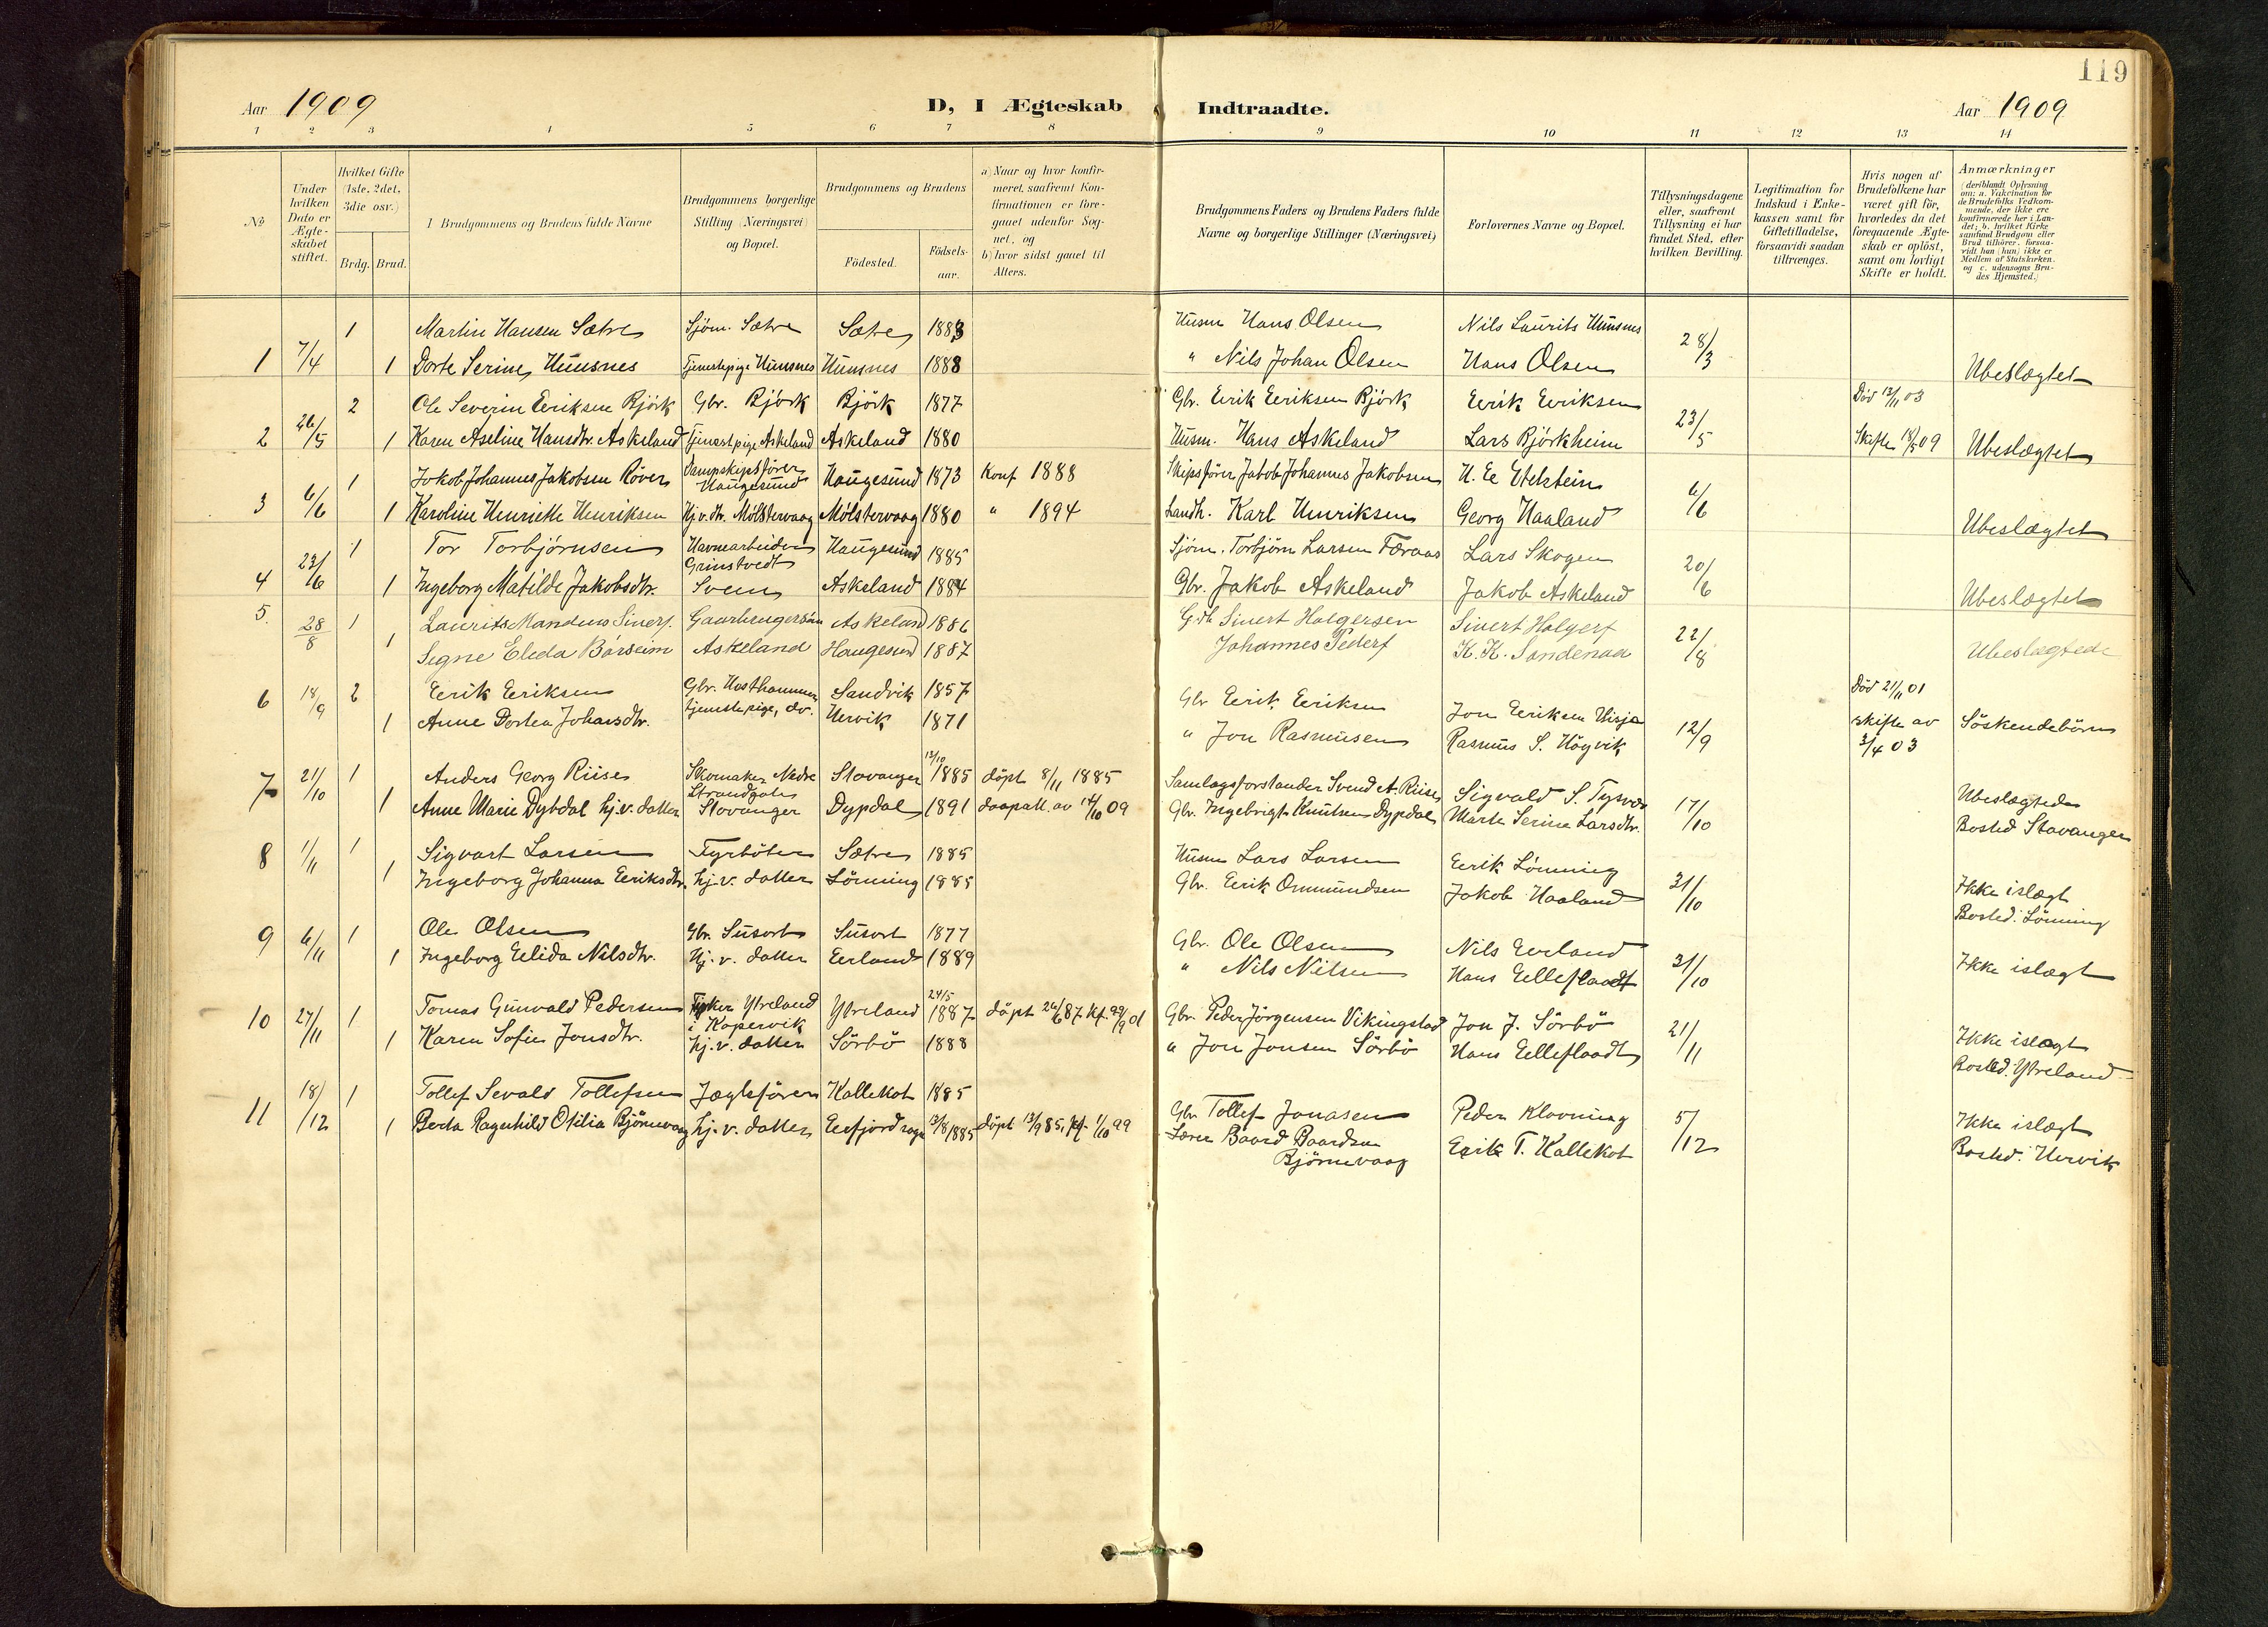 119
Aar 1909
D, I Ægteskab Indtraadte.
Aar 1909
1 2 3 4 5 6 7 8 9 10 11 12 13 14
№
Under hvilken Dato er Ægte-skabet stiftet.
Hvilket Gifte (1ste, 2det, 3die osv.)
Brdg. Brud.
Brudgommens og Brudens fulde Navne
Brudgommens borgerlige Stilling (Næringsvei) og Bopæl.
Brudgommens og Brudens
Födested.
Födsels-aar.
a) Naar og hvor konfir-meret, saafremt Kon-firmationen er fore-gaaet udenför Sog-net, og
b) hvor sidst gaaet til Alters.
Brudgommens Faders og Brudens Faders fulde Navne og borgerlige Stillinger (Næringsvei)
Forlovernes Navne og Bopæl.
Tillysningsdagene eller, saafremt Tillysning ei har fundet Sted, efter hvilken Bevilling.
Legitimation for Indskud i Enke-kassen samt for Giftetilladelse, forsaavidt saadan tiltrænges.
Hvis nogen af Brudefolkene har været gift för, hvorledes da det foregaaende Ægte-skab er oplöst, samt om lovligt Skifte er holdt.
Anmærkninger (deriblandt Oplysning om: a. Vakcination for de Brudefolks Vedkom-mende, der ikke ere konfirmerede her i Lan-det; b. hvilket Kirke-samfund Brudgom eller Brud tilhører, forsaa-vidt han (hun) ikke er Medlem af Statskirken, og c. udensogns Bru-des Hjemsted.)
1 Martin Hansen Sætre Sjöm. Sætre Sætre 1883 Husm Hans Olsen Nils Laurits Hunsnes
1 7/4 1 Dorte Serine Hunsnes Tjenestepige Hunsnes Hunsnes 1888 " Nils Johan Olsen Hans Olsen 28/3 Ubeslægtet
2 Ole Severin Eeriksen Björk Gbr. Björk Björk 1877 Gbr. Eerik Eeriksen Björk Eerik Eeriksen Död 12/11 03
2 26/5 1 Karen Aseline Hansdtr. Askeland Tjenestpige Askeland Askeland 1880 Husm. Hans Askeland Lars Björkheim 23/5 Skifte 18/5 09 Ubeslægtet
1 Jakob Johannes Jakobsen Röver Dampskipsförer Haugesund Haugesund 1873 Konf 1888 Skipsförer Jakob Johannes Jakobsen
3 6/6 1 Karoline Henriette Henriksen Hj.v.dtr. Mölstervaag Mölstervaag 1880 " 1894 Landh. Karl Henriksen Georg Haaland 6/6 Ubeslægtet
1 Tor Torbjörnsen Havnearbeider Haugesund 1885 Sjöm. Torbjörn Larsen Færaas Lars Skogen
4 23/6 1 Ingeborg Matilde Jakobsdtr. Askeland 1884 Gbr. Jakob Askeland Jakob Askeland 20/6 Ubeslægtet
5. 28/8 1 Laurits Mandius Sivers. Askeland 1886 Sivert Holgersen Sivert Holgers
1 Signe Eleda Börseim Askeland Haugesund 1887 Johannes Peders K. K. Sandenaa 22/8 Ubeslægtede
6 18/9 2 Eerik Eeriksen Gbr. Sandvik 1857 Gbr Eerik Eeriksen Jon Eeriksen Död 21/11 01
1 Anne Dortea Johansdtr. tjenestepige, do. Hervik 1871 " Jon Rasmusen Rasmus S. Högvik 12/9 skifte av 3/4 03 Söskendebörn
7 21/10 1 Anders Georg Riise Skomaker Nedre Strandgate Stavanger 12/10 1885 döpt 8/11 1885 Samlagsforstander Svend A. Riise Sigvald S. Tysvær
1 Anne Marie Dybdal hj.v. datter Stavanger Dypdal 1891 daapatt. av 14/10 09 Gbr. Ingebrigt Knutsen Dypdal Marte Serine Larsdtr. 17/10 Ubeslægtede Bosted Stavanger
8 1/11 1 Sigvart Larsen Fyrböter Sætre 1885 Husm Lars Larsen Eerik Lönning
1 Ingeborg Johanna Eeriksdtr. hj.v. datter Lönning 1885 Gbr. Eerik Ommundsen Jakob Haaland 31/10 Ikke i slægt Bosted: Lönning
9 6/11 1 Ole Olsen Gbr. Susort Susort 1877 Gbr. Ole Olsen Nils Eerland
1 Ingeborg Eelida Nilsdtr. Hj.v. datter Eerland 1889 " Nils Nilsen Hans Eelleflaadt 31/10 Ikke i slægt
10 27/11 1 Tomas Gunvald Pedersen Fisker Ytreland i Kopervik Ytreland 24/5 1887 döpt 26/6 87 kf. 29/9 01 Gbr. Peder Jörgensen Vikingstad Jon J. Sörbö
1 Karen Sofie Jonsdtr. hj.v. datter Sörbö 1888 " Jon Jonsen Sörbö Hans Eelleflaadt 21/11 Ikke i slægt Bosted. Ytreland
11 18/12 1 Tollef Sevald Tollefsen Jægtefører Kallekot 1885 Gbr Tollef Jonasen Peder Klovning
1 Berta Ragnhild Otilia Björnevaag hj.v. datter 13/8 1885 döpt 13/9 85, kf. 1/10 99 Lærer Baard Baardsen Björnevaag Eerik T. Kallekot 5/12 Ikke i slægt Bosted: Hervik